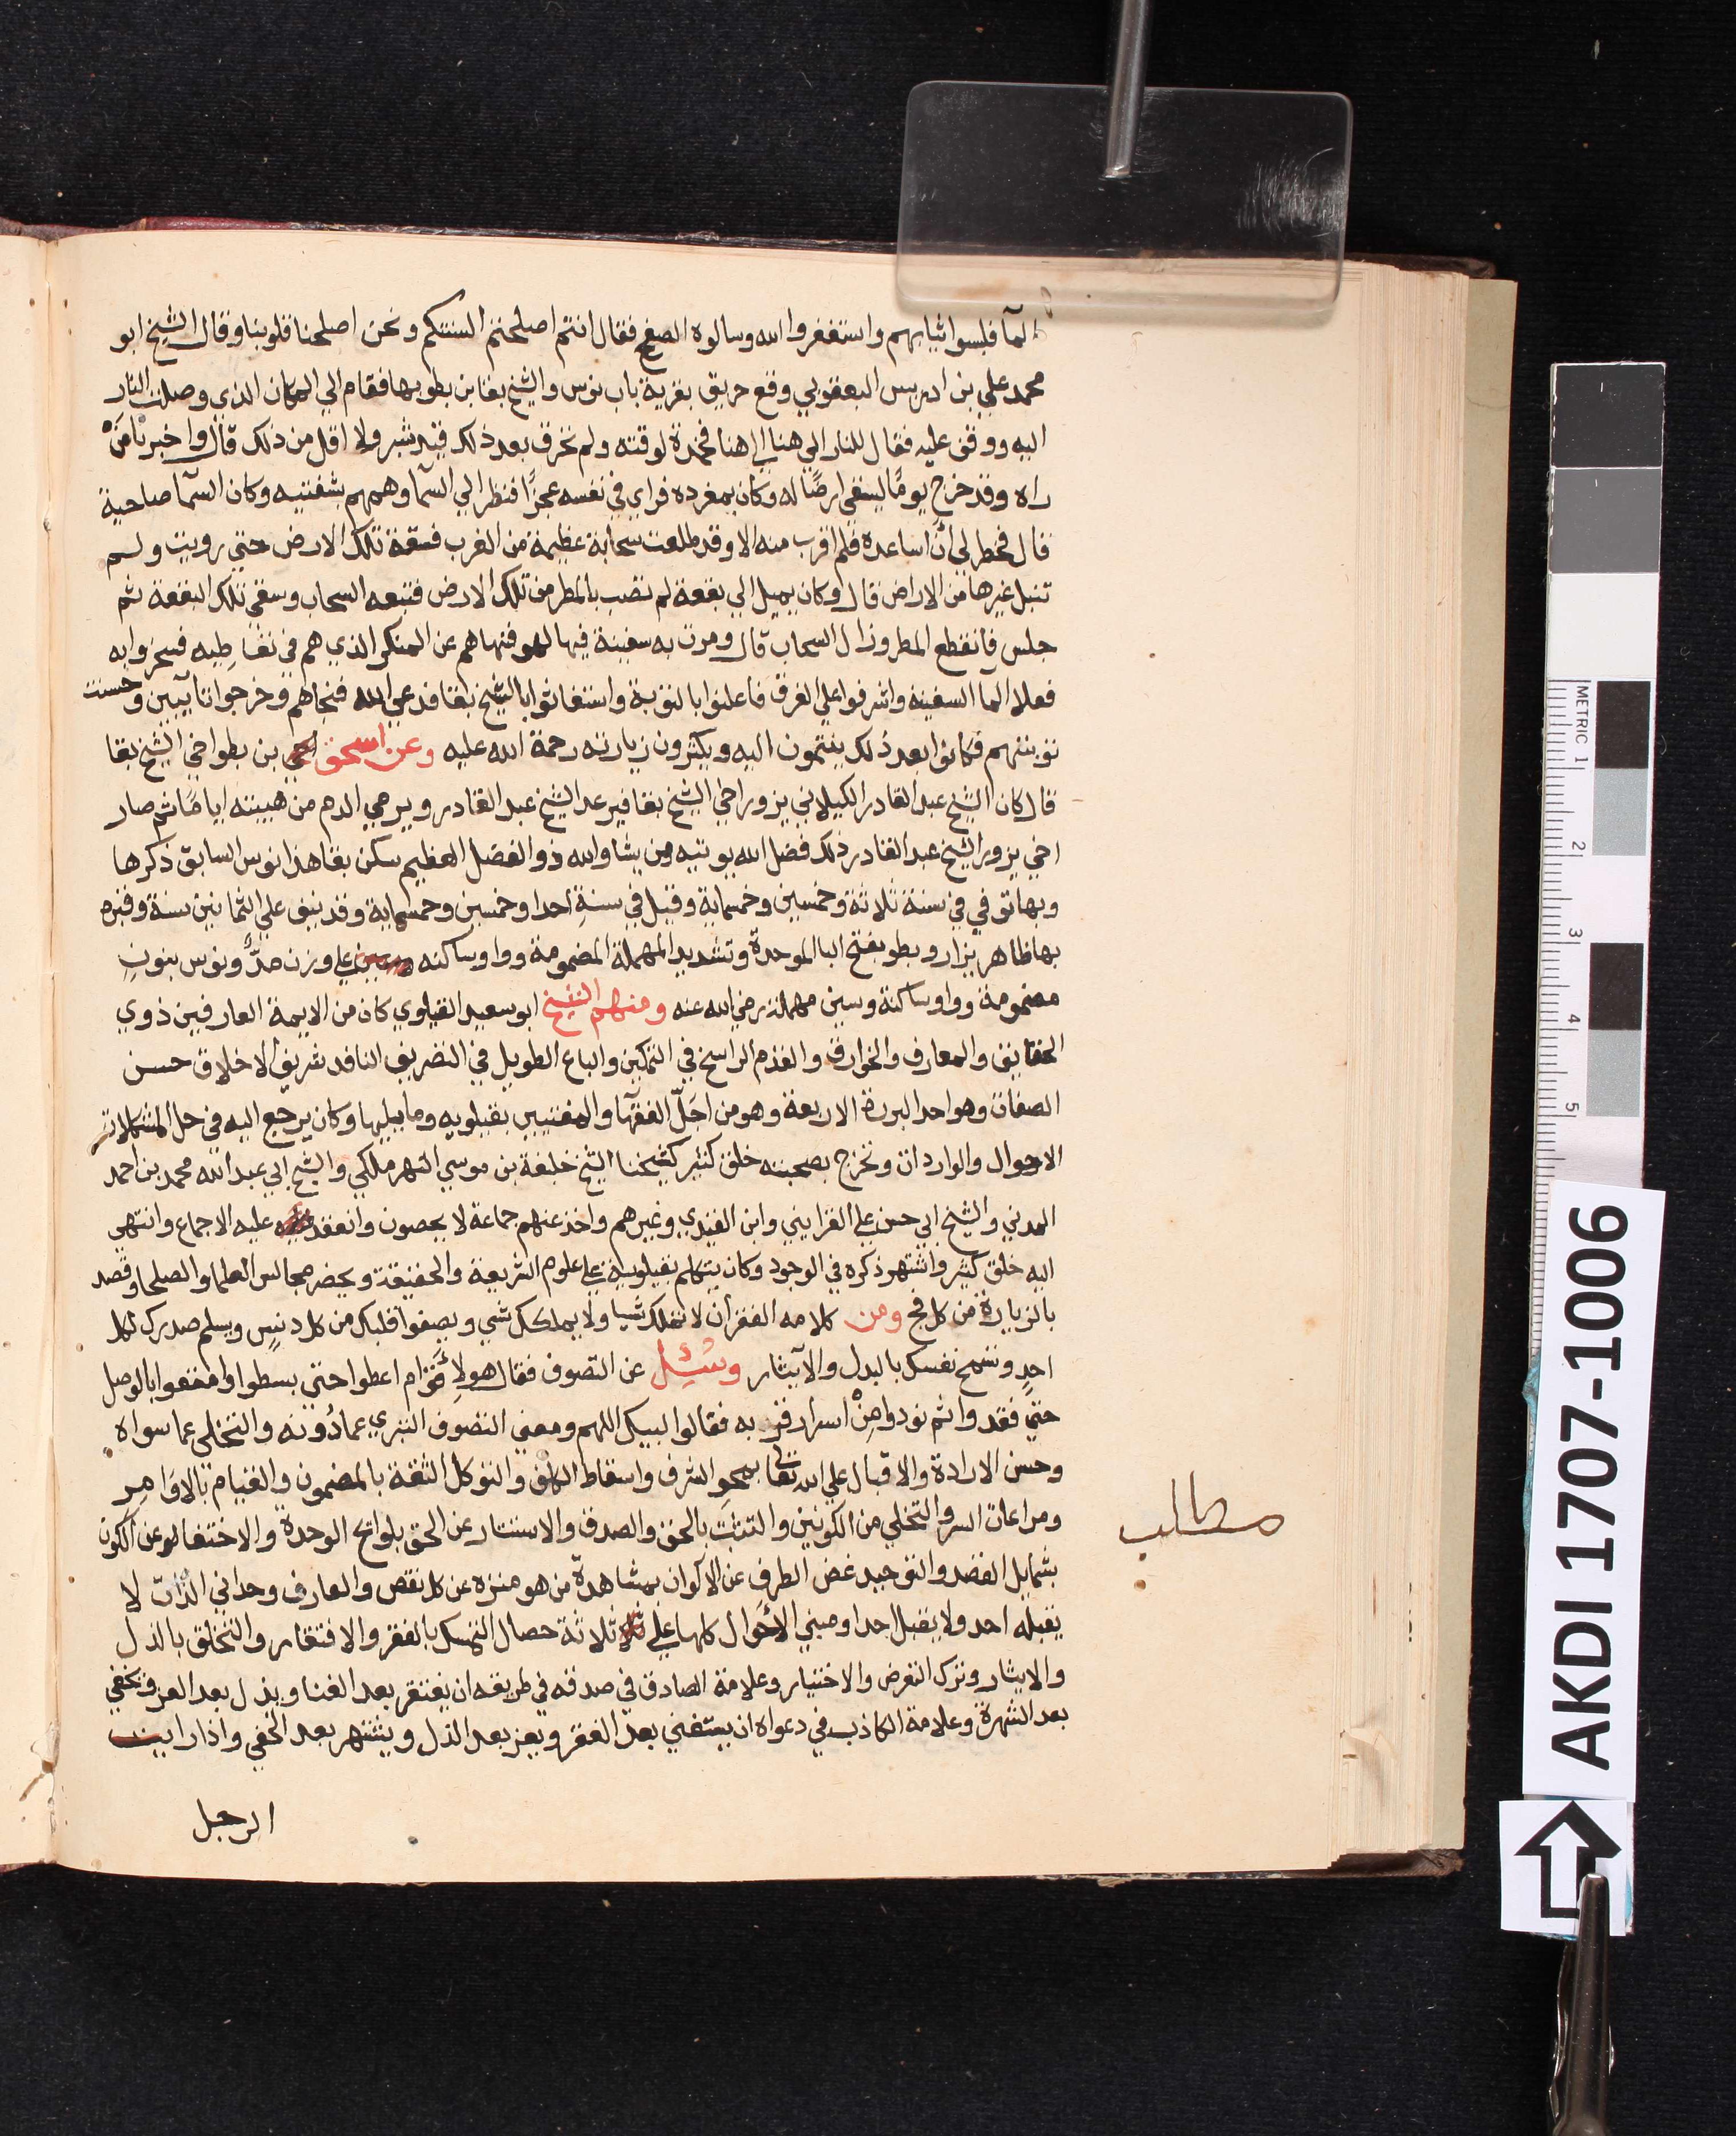 الما فلبسوا ثيابهم واستغفروا الله وسالوه الصفح فقال انتم اصلحتم السنتكم ونحن اصلحنا قلوبنا وقال الشيخ ابو
محمد علي بن ادريس اليعقوبي وقع حريق بقرية باب نوس والشيخ بقا بن بطو بها فقام الي المكان الذي وصلت النار
اليه ووقف عليه فقال للنار الي هنا الي هنا فخمدة لوقته ولم تحرق بعد ذلك قيد شبر ولا اقل من ذلك قال واخبرنا من
راه وقد خرج يومًا ليسقي ارضًا له وكان بمفرده فراي في نفسه عجزًا فنظر الي السمآ وهمهم بشفتيه وكان السمآ صاحية
قال فخطر لي أن اساعده فلم اقرب منه الا وقد طلعت سحابة عظيمة من الغرب فسقة تلك الارض حتي رويت ولم
تنبل غيرها من الاراض قال وكان يميل الي بقعة لم تصب بالمطر من تلك الارض فتتبعه السحاب وسقي تلك البقعة ثم
جلس فانقطع المطر وزال السحاب قال ومرت به سفينة فيها لهو فنهاهم عن المنكر الذي هم في تعاطيه فسخروا به
فعلا الما السفينة واشرفوا علي الغرق فاعلنوا بالتوبة واستغاثوا بالشيخ بقا فدعي الله فنجاهم وخرجوا تايبين وحسنت
توبتهم فكانوا بعد ذلك ينتمون اليه ويكثرون زيارته رحمة الله عليه وعن اسحق بن بطو اخي الشيخ بقا
قال كان الشيخ عبد القادر الكيلاني يزور اخي الشيخ بقا فيرعد الشيخ عبد القادر ويرمي الدم من هيبته اياما ثم صار
اخي يزور الشيخ عبد القادر ذلك فضل الله يوتيه من يشا والله ذو الفضل العظيم سكن بقا هذا نوس السابق ذكرها
وبها توفي في سنة ثلاثة وخمسين وخمسماية وقيل في سنةِ أحدا وخمسين وخمسماية وقد نيف علي الثمانين سنة وقبره
بها ظاهر يزار وبطو بفتح البا الموحدة وتشديد المهملة المضمومة وواو ساكنه علي وزن مدُّو ونوس بنونٍ
مضمومة وواو ساكنة وسين مهملة رضي الله عنه ومنهم الشيخ ابو سعيد القيلوي كان من الايمة العارفين ذوي
الحقايق والمعارف والخوارق والقدم الراسخ في التمكين والباع الطويل في التصريف النافد شريف الاخلاق حسن
الصفات وهو احد البررة الاربعة وهو من اجَلّ الفقهآ والمفتيين بقيلويه وما يليها وكان يرجع اليه في حل المشكلات
الاحوال والواردات وتخرج بصحبته خلق كثير كشيخنا الشيخ خليفة بن موسي النهر ملكي والشيخ ابي عبد الله محمد بن احمد
المدني والشيخ ابي حسن علي القزايني وابن القيدي وغيرهم واخذ عنهم جماعة لا يحصون وانعقد عليه الاجماع وانتهي
اليه خلق كثير واشتهر ذكره في الوجود وكان يتكلم بقيلويه علي علوم الشريعة والحقيقة ويحضر مجالس العلما والصلحا وقصد
بالزيارة من كل فج ومن كلامه الفقر أن لا تملك شيا ولا يملكك شي ويصفوا قلبك من كل دنسٍ ويسلم صدرك لكل
احدٍ وتسمح نفسك بالبدل والآيثار وسُئِل عن التصوف فقال هولاءِ قوام اعطوا حتي بسطوا وامنعوا بالوصل
حتي فقدوا ثم نودوا مِنْ اسرار قربه فقالوا لبيك اللهم ومعني التصوف التبري عما دُونه والتخلي عما سواه
وحسن الارادة والاقبال علي الله تعالى بمحوِ السرف واسقاط والتوكل الثقة بالمضمون والقيام بالاوَامِر
ومراعات السر والتخلي من الكونين والتثبُت بالحق والصدق والاستتار عن الحق بلوايح الوحدة والاختفا لو عن الكون
بشمايل القصد والتوحيد غض الطرف عن الاكوان بمشاهدة من هو منزه عن كل نقص والعارف وحداني الذات لا
يقبله احد ولا يقبل احدا ومبني الأحَوال كلها علي ثلاثة خصال التمسك بالفقر والافتقار والتخلق بالذل
والايثار وترك التعرض والاختيار وعلامة الصادق في صدقه في طريقه ان يفتقر بعد الغنا ويذل بعد العز وتخفي
بعد الشهرة وعلامة الكاذب في دعواه ان يستغني بعد الفقر ويعز بعد الذل ويشتهر بعد الخفي واذا رايت
الرجل
مطلب
AKDI 1707-1006
METRIC 1 2 3 4 5